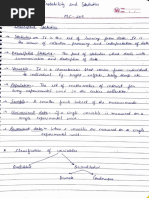 Probability and Statistics
MC-205
• Descriptive Statistics
• Statistics → It is the art of learning from data. It is
the science of collection, processing and interpretation of data
• Descriptive Statistics → The part of statistics which deals with
summarization and description of data
• Variable → It is a characteristic that varies from individual
to individual. Eg: weight, religion, body temp. etc.
• Population → The set of
every experimental unit in the entire collection.
• Sample → A smaller finite subset of the
• Univariate data → When one variable is measured on a
single experimental unit.
• Bivariate data → When two variables are measured on a
single experimental unit.
• Classification of variables
Qualitative
Quantitative
Discrete
Continuous